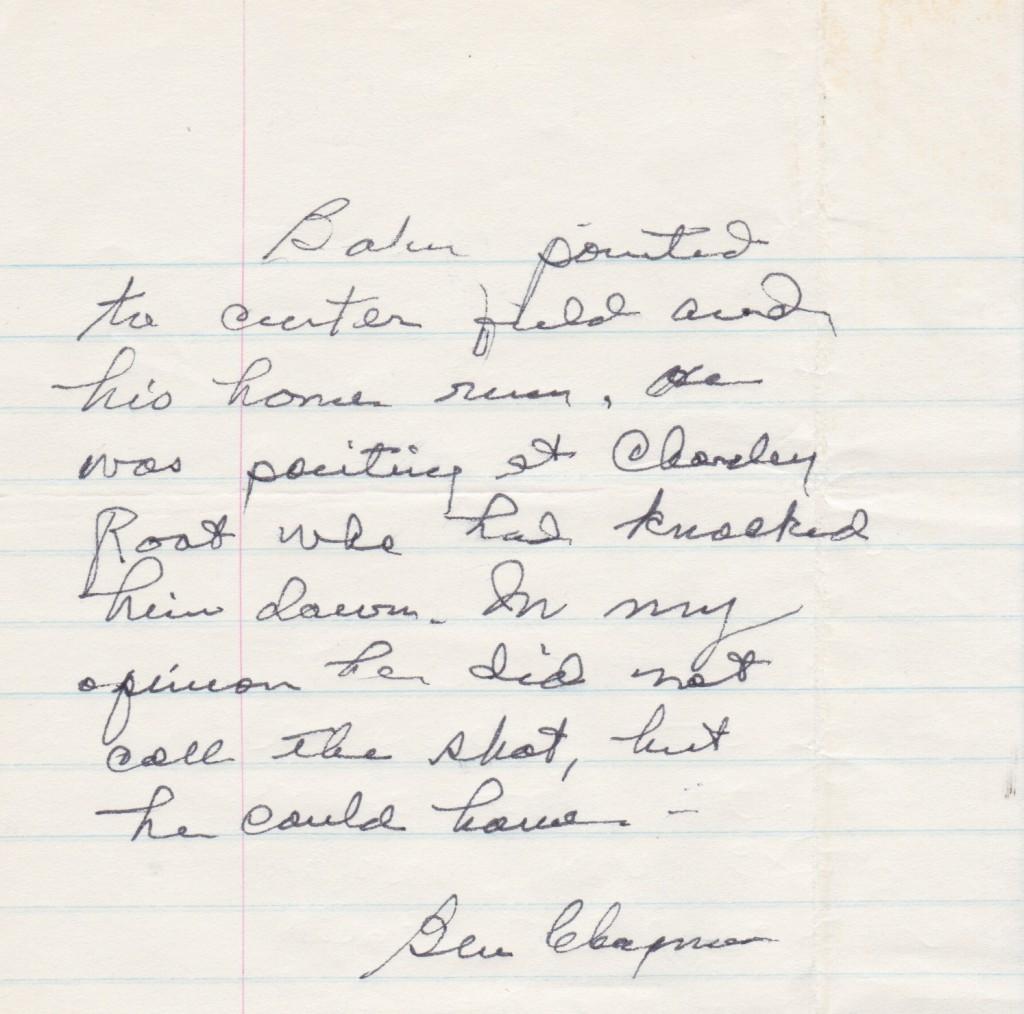 Babe pointed
to center field and
his home run. He
was pointing at Charley
Root who had knocked
him down. In my
opinion he did not
call the shot, but
he could have. -
Ben Chapman